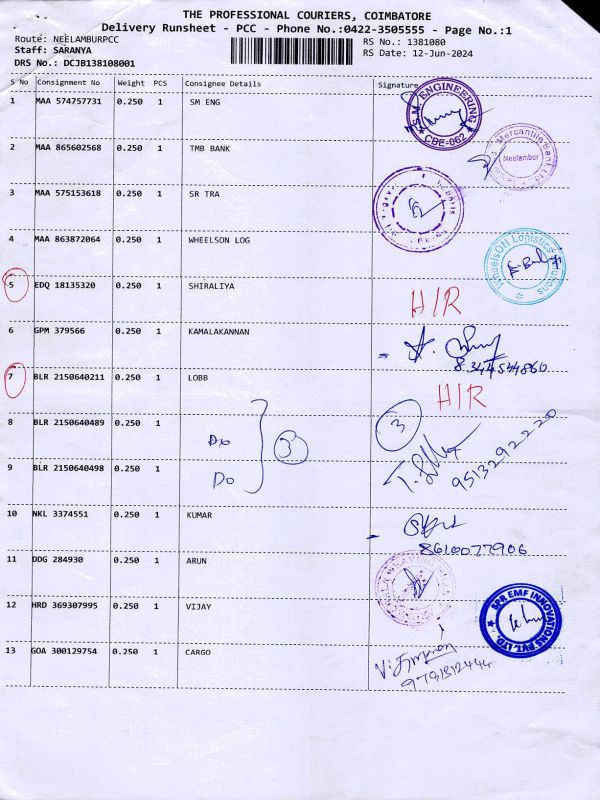 THE PROFESSIONAL COURIERS, COIMBATORE
Delivery Runsheet - PCC - Phone No.:0422-3505555 - Page No.:1
Route: NEELAMBURPCC RS No.: 1381080
Staff: SARANYA RS Date: 12-Jun-2024
DRS No.: DCJB138108001
S No Consignment No Weight PCS Consignee Details Signature
1 MAA 574757731 0.250 1 SM ENG
S.M. ENGINEERING CBE-062
2 MAA 865602568 0.250 1 TMB BANK
Mercantile Bank Ltd Neelambur
3 MAA 575153618 0.250 1 SR TRA
4 MAA 863872064 0.250 1 WHEELSON LOG
WheelsON Logistics Solutions
5 EDQ 18135320 0.250 1 SHIRALIYA H/R
6 GPM 379566 0.250 1 KAMALAKANNAN
8344544860
7 BLR 2150640211 0.250 1 LOBB H/R
8 BLR 2150640489 0.250 1 Do 3 3
9 BLR 2150640498 0.250 1 Do 9513292220
10 NKL 3374551 0.250 1 KUMAR
8610077906
11 DDG 284930 0.250 1 ARUN
12 HRD 369307995 0.250 1 VIJAY
SPR EMF INNOVATIONS PVT. LTD.
13 GOA 300129754 0.250 1 CARGO
9791312444